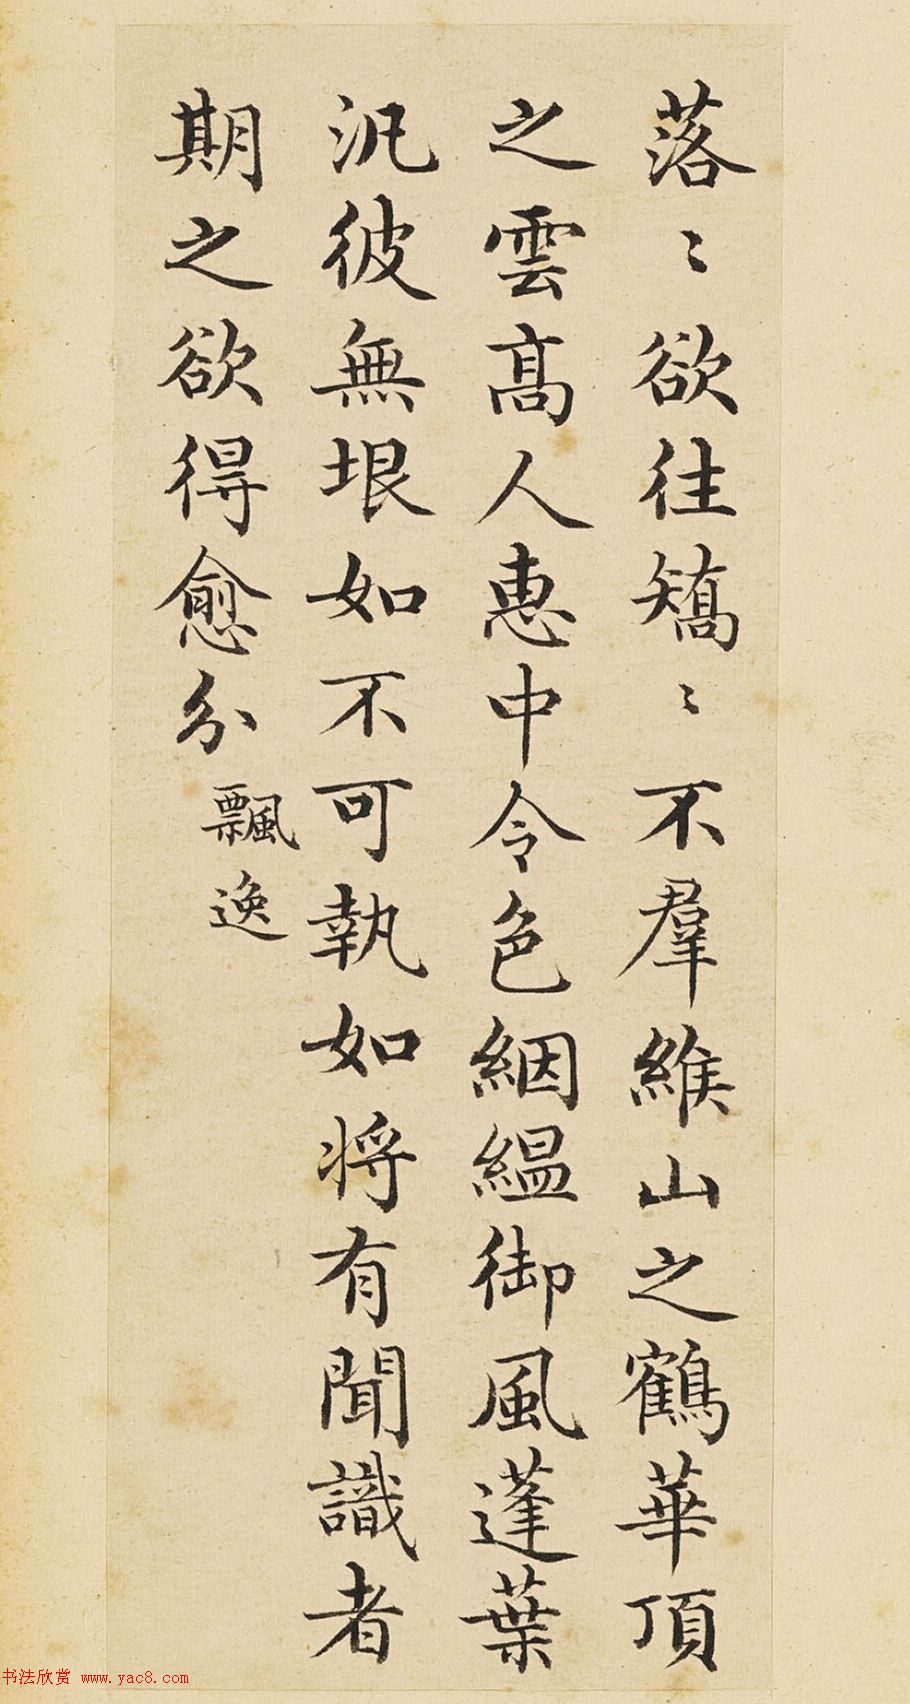 落〻欲往矯〻不羣緱山之鶴華頂
之雲髙人惠中令色絪緼御風蓬葉
汎彼無垠如不可執如将有聞識者
期之欲得愈分
飄逸
书法欣赏 www.yac8.com